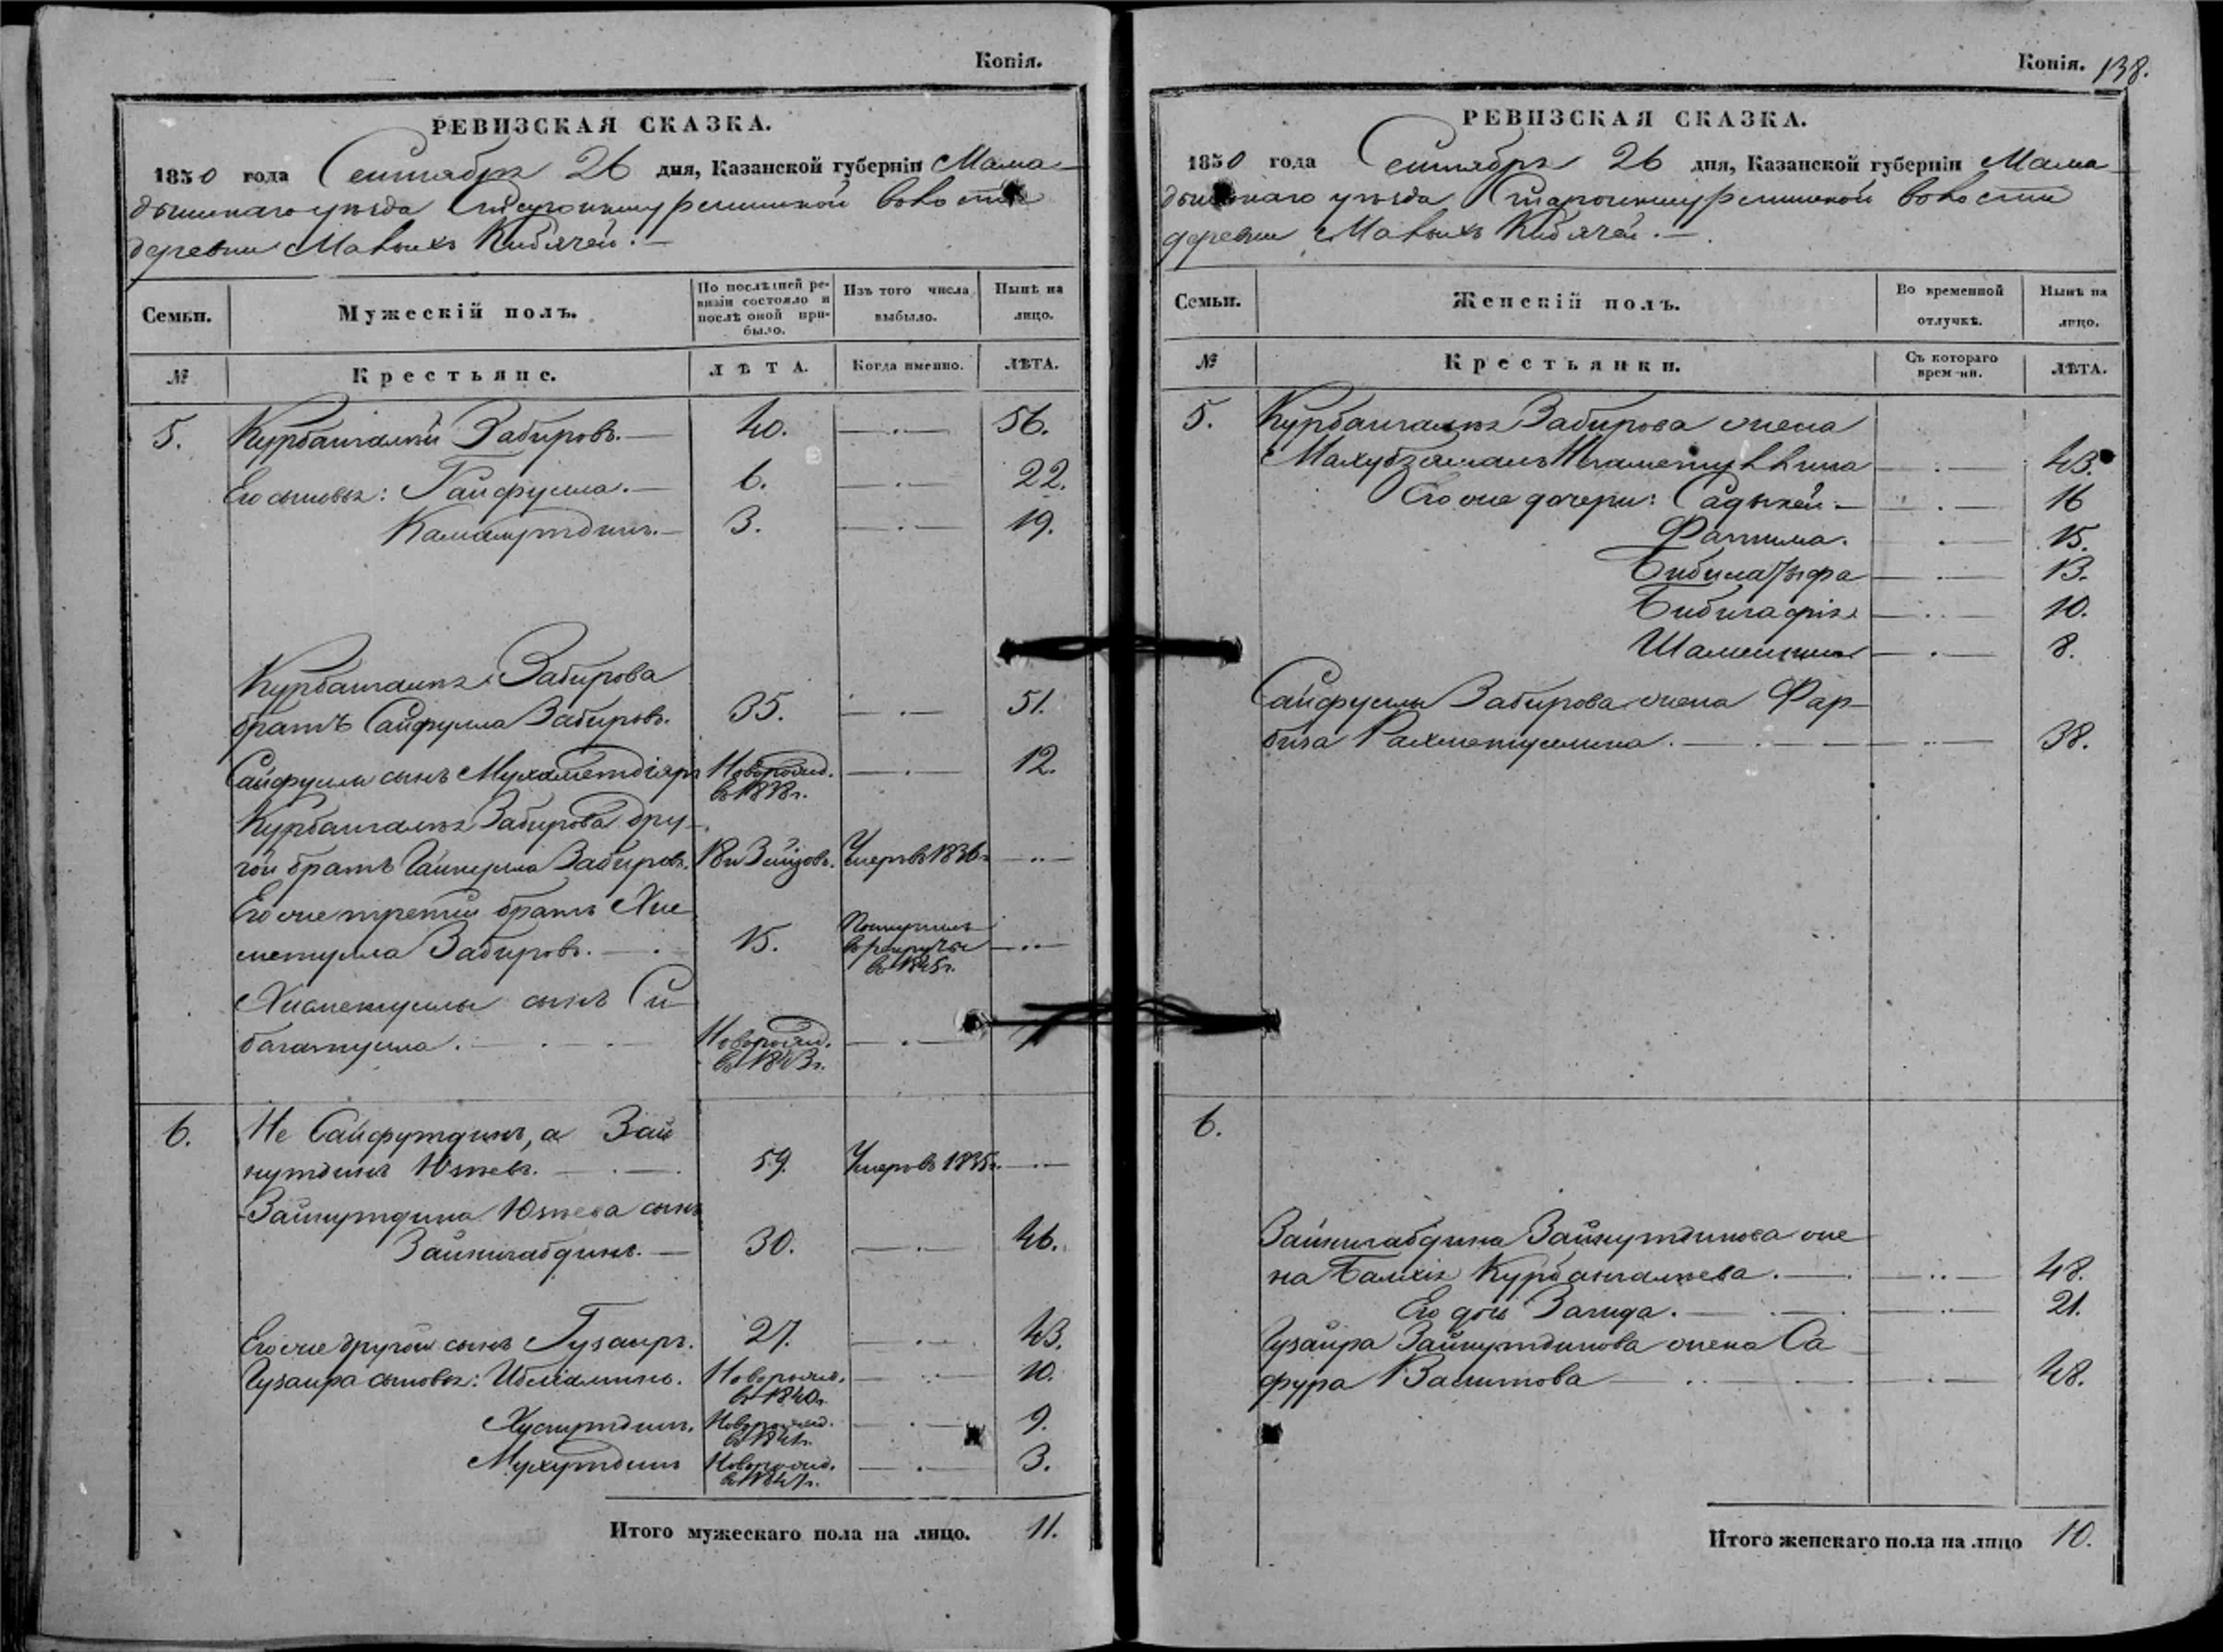 Копія.
РЕВИЗСКАЯ СКАЗКА.
1850 года Сентября 26 дня, Казанской губерніи Мама-
дышскаго уѣзда волости
деревни Малыхъ Кибячей.
Семьи.
Мужескій полъ.
По послѣдней ре-
визіи состояло и
послѣ оной при-
было.
Изъ того числа
выбыло.
Нынѣ на
лицо.
№
Крестьяне.
ЛѢТА.
Когда именно.
ЛѢТА.
5. Курбангалей Забировъ. 40. 56.
Его сыновья: Гайфулла. 6. 22.
Камалутдинъ. 3. 19.
Курбангалея Забирова
братъ Сайфулла Забировъ. 35. 51.
Сайфуллы сынъ Мухаметдіяръ Новорожд. 12.
въ 1838г.
Курбангалея Забирова дру-
гой братъ Забировъ. Умеръ въ 1836г.
Его же третій братъ Хис-
метулла Забировъ. 15. Поступилъ
въ рекруты
въ 1845г.
Хисметуллы сынъ Си-
багатулла. Новорожд. 7
въ 1843г.
6. Не Сайфутдинъ, а Зай
нутдинъ Юзѣевъ. 59. Умеръ въ 1835г.
Зайнутдина Юзѣева сынъ
Зайнигабдинъ. 30. 46.
Его же другой сынъ Гузаиръ. 27. 43.
Гузаира сыновья: Новорожд. 10.
въ 1840г.
Хуснутдинъ. Новорожд. 9.
въ 1841г.
Мухутдинъ Новорожд. 3.
въ 1847г.
Итого мужескаго пола на лицо. 11.
Копія. 138.
РЕВИЗСКАЯ СКАЗКА.
1850 года Сентября 26 дня, Казанской губерніи Мама-
дышскаго уѣзда волости
деревни Малыхъ Кибячей.
Семьи.
Женскій полъ.
Во временной
отлучкѣ.
Нынѣ на
лицо.
№
Крестьянки.
Съ котораго
времени.
ЛѢТА.
5. Курбангалея Забирова жена
43.
Его же дочери: Садыкей 16
Фатима. 15.
13.
10.
8.
Сайфуллы Забирова жена Фар-
биза Рахметуллина. 38.
6.
Зайнигабдина Зайнутдинова же
на Курбангалѣева. 48.
Его дочь Загида. 21.
Гузаира Зайнутдинова жена Са
фура Валитова 48.
Итого женскаго пола на лицо 10.